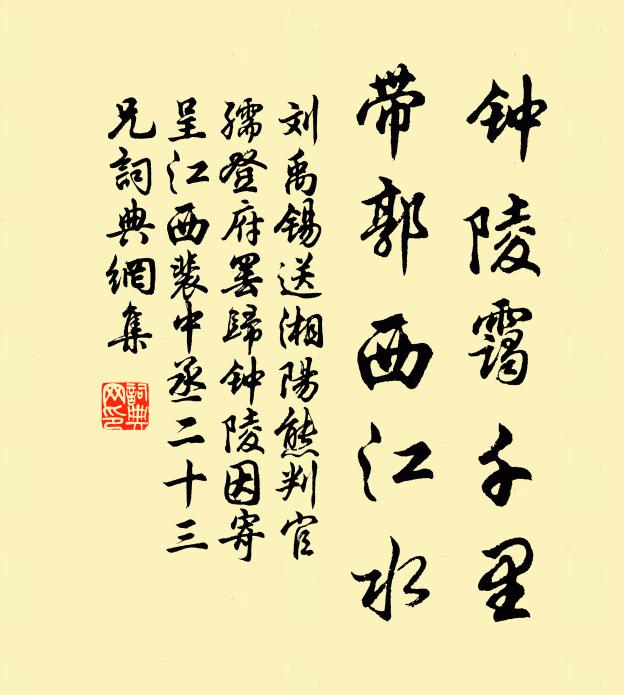 钟陵霭千里
带郭西江水
刘禹锡送湘阳熊判官
孺登府罢歸钟陵因寄
呈江西裴中丞二十三
兄詞典網集
詞典
网印